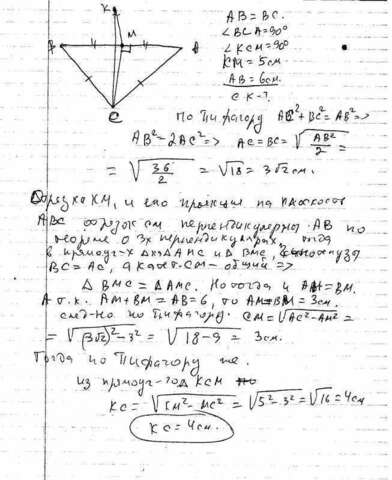 K
M
B
A
C
AB = BC.
∠BCA = 90°
∠KCM = 90°
KM = 5см
AB = 6см.
CK - ?
По Пифагору AC² + BC² = AB² =>
AB² = 2AC² => AC = BC = √(AB²/2) =
= √(36/2) = √18 = 3√2 см.
Отрезка KM, и его проекция на плоскость
ABC отрезок CM перпендикулярны AB по
теореме о 3х перпендикулярах, тогда
в прямоуг-х Δх ΔAMC и Δ BMC,
BC = AC, а катет CM - общий =>
Δ BMC = Δ AMC. Но тогда и AM = BM.
А т.к. AM + BM = AB = 6, то AM = BM = 3см.
след-но по Пифагору. CM = √AC² - AM² =
= √(3√2)² - 3² = √18 - 9 = 3см.
Тогда по Пифагору же.
из прямоуг-го Δ KCM
KC = √KM² - MC² = √5² - 3² = √16 = 4см
KC = 4см.